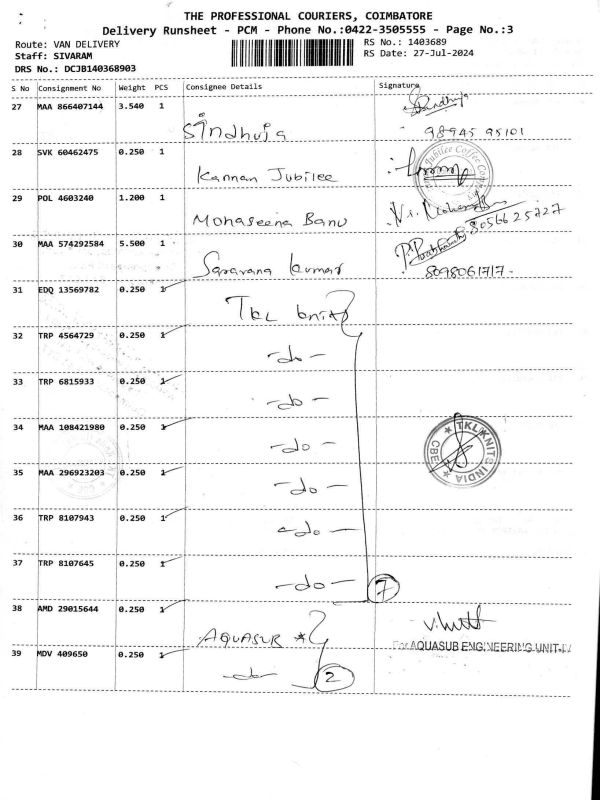 THE PROFESSIONAL COURIERS, COIMBATORE
Delivery Runsheet - PCM - Phone No.:0422-3505555 - Page No.:3
Route: VAN DELIVERY RS No.: 1403689
Staff: SIVARAM RS Date: 27-Jul-2024
DRS No.: DCJB140368903
S No Consignment No Weight PCS Consignee Details Signature
27 MAA 866407144 3.540 1 Sindhuja Sindhuja
98945 95101
28 SVK 60462475 0.250 1 Kannan Jubilee
Jubilee Coffee
29 POL 4603240 1.200 1 Mohaseena Banu
8056625727
30 MAA 574292584 5.500 1 Saravana Kumar
8098061717
31 EDQ 13569782 0.250 1 TKL knits
32 TRP 4564729 0.250 1 -do-
33 TRP 6815933 0.250 1 -do-
34 MAA 108421980 0.250 1 -do-
TKL KNITS INDIA
CBE
35 MAA 296923203 0.250 1 -do-
36 TRP 8107943 0.250 1 -do-
37 TRP 8107645 0.250 1 -do- 7
38 AMD 29015644 0.250 1 AQUASUB
For AQUASUB ENGINEERING UNIT-IV
39 MDV 409650 0.250 1 -do- 2